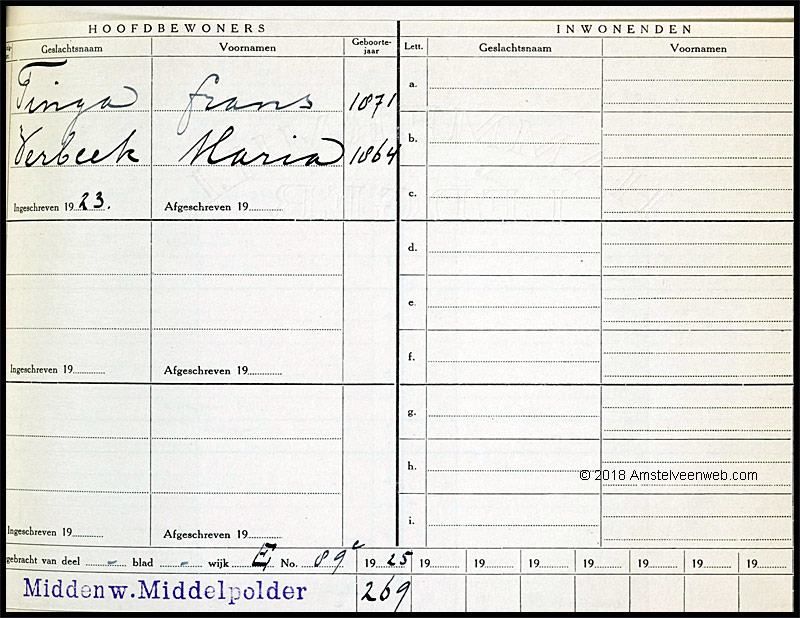 HOOFDBEWONERS INWONENDEN
Geslachtsnaam Voornamen Geboorte-jaar Lett. Geslachtsnaam Voornamen
Tinga Frans 1871 a.
Verbeek Maria 1864 b.
Ingeschreven 1923. Afgeschreven 19 c.
d.
e.
Ingeschreven 19 Afgeschreven 19 f.
g.
h.
© 2018 Amstelveenweb.com
i.
Ingeschreven 19 Afgeschreven 19
gebracht van deel - blad - wijk E No. 89c 1925 19 19 19 19 19 19 19
Middenw. Middelpolder 269